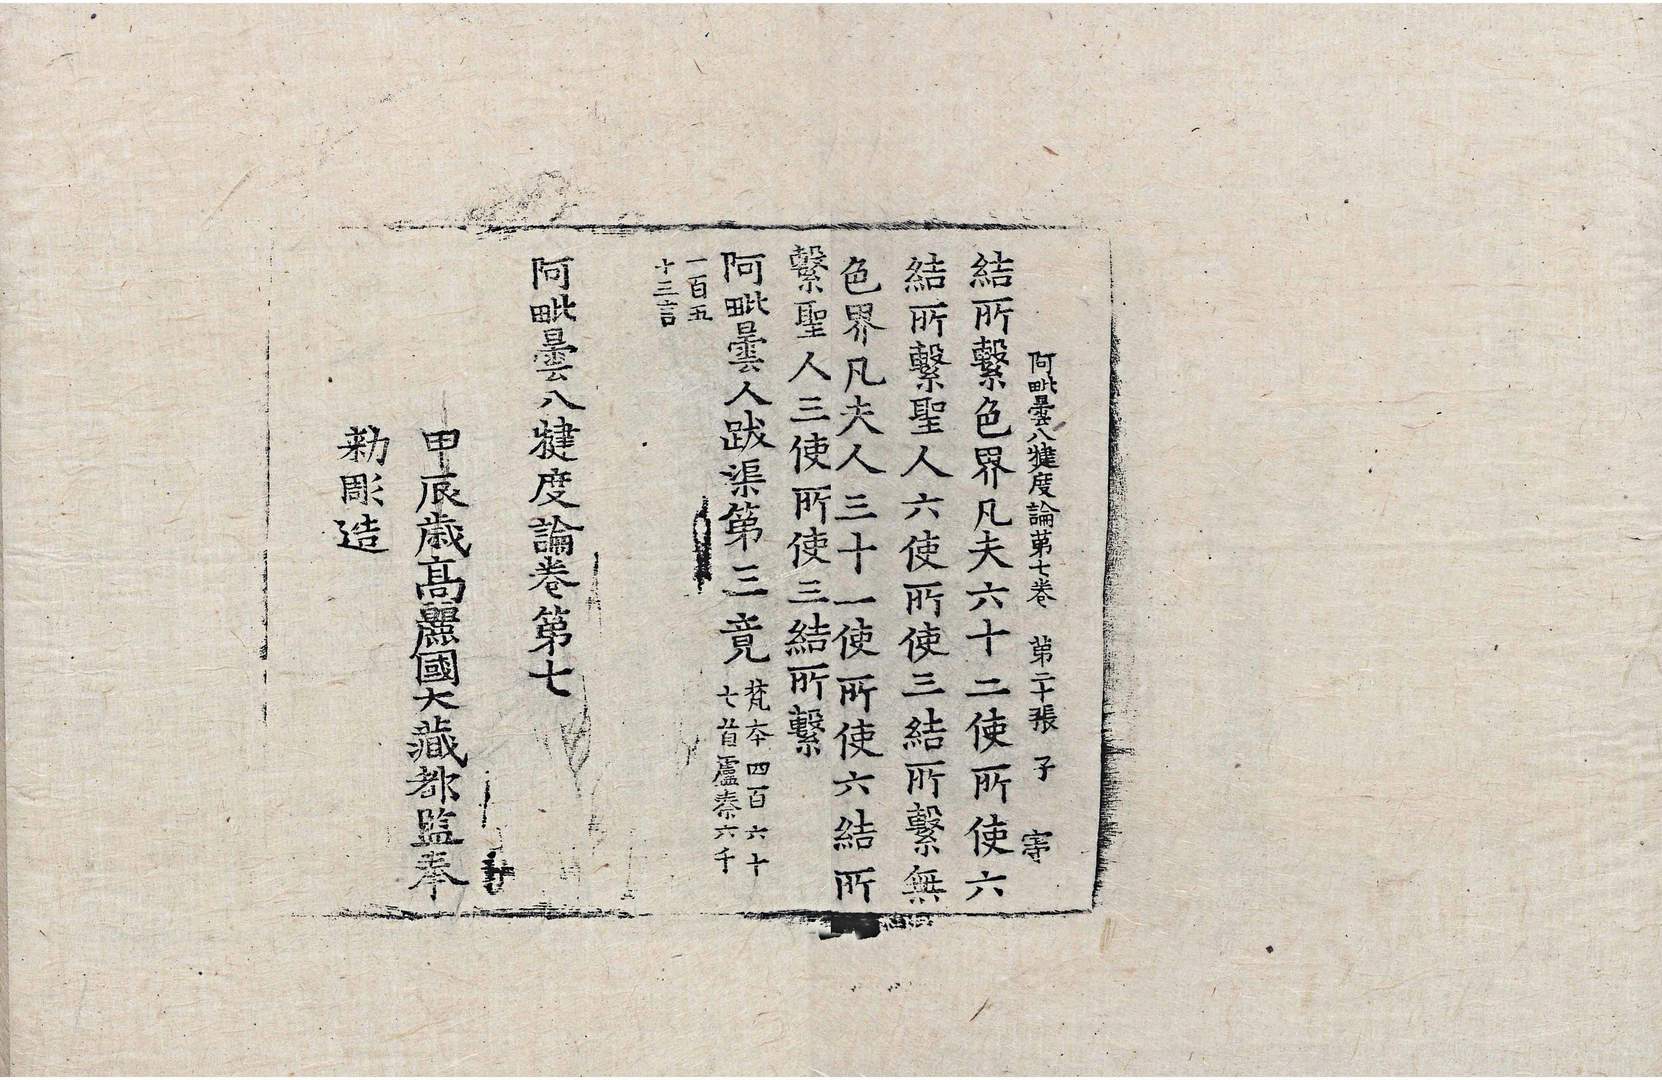 阿毗曇八犍度論苐七卷 苐二十張 子
結所繫色界凡夫六十二使所使六
結所繫聖人六使所使三結所繫無
色界凡夫人三十一使所使六結所
繫聖人三使所使三結所繫
阿毗曇人跋渠第三竟 梵夲四百六十
七首盧秦六千
一百五
十三言
阿毗曇八犍度論卷第七
甲辰歲高麗國大藏都監奉
勑彫造